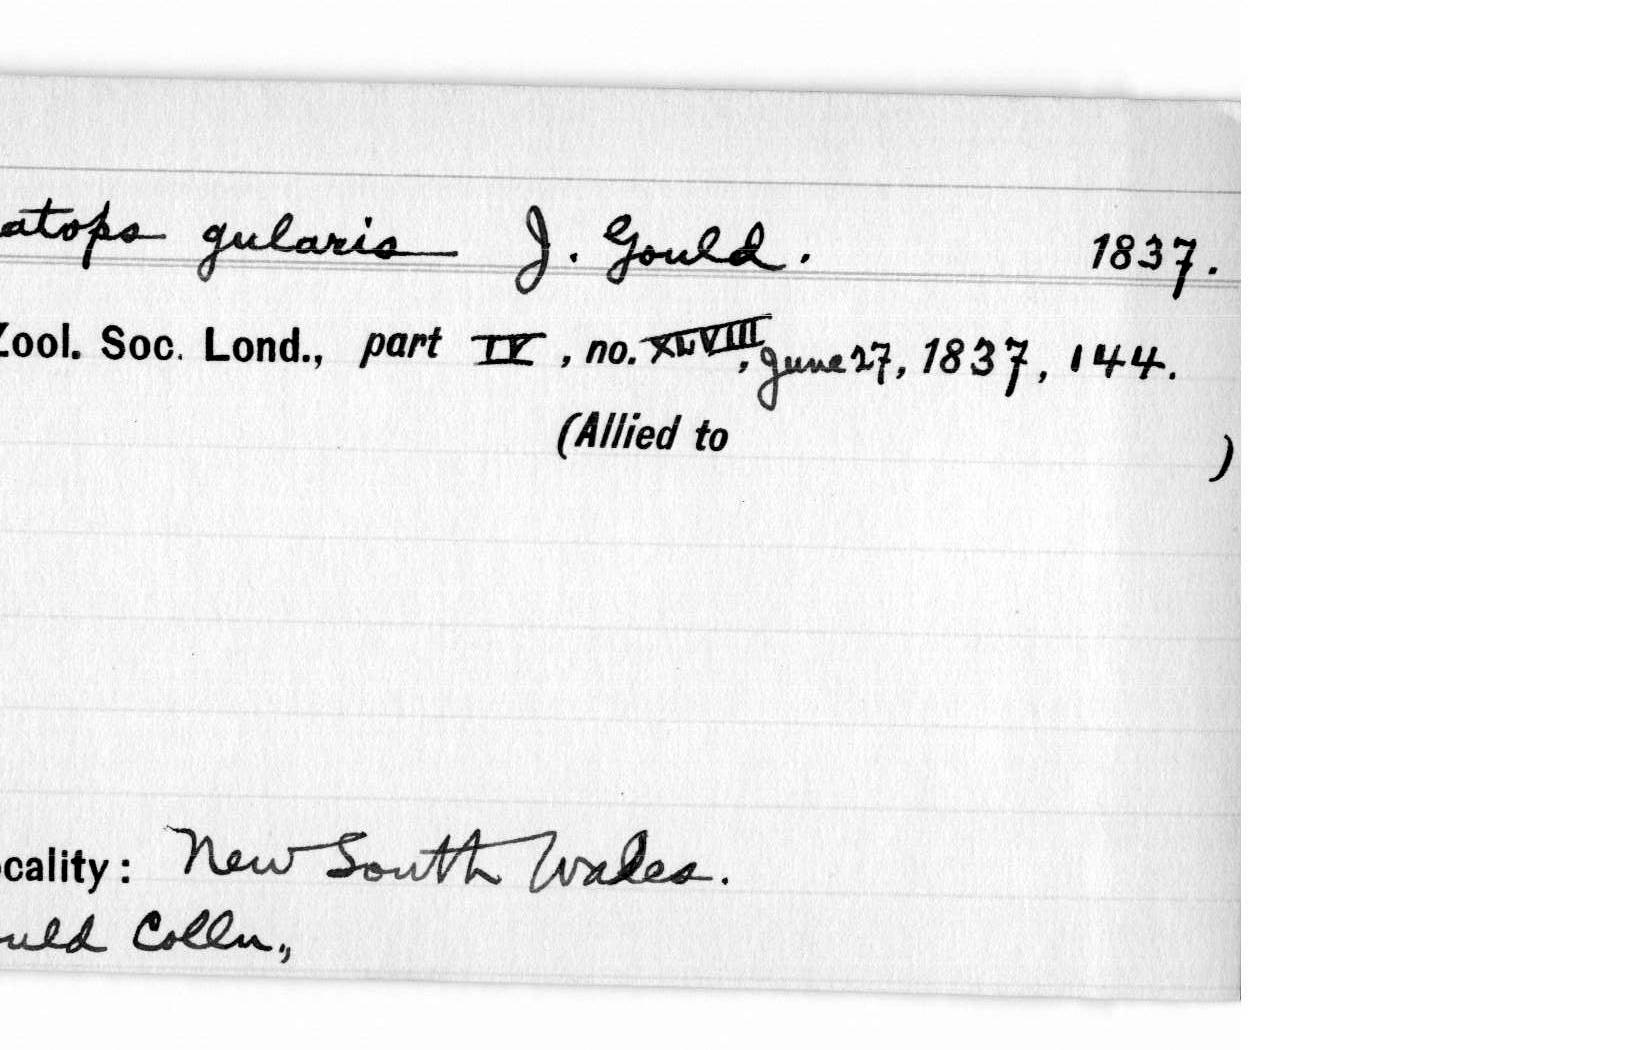 atops gularis J. Gould. 1837.
Zool. Soc. Lond., part IV, no. XLVIII, June 27, 1837, 144.
(Allied to )
ocality: New South Wales.
uld Colln.,